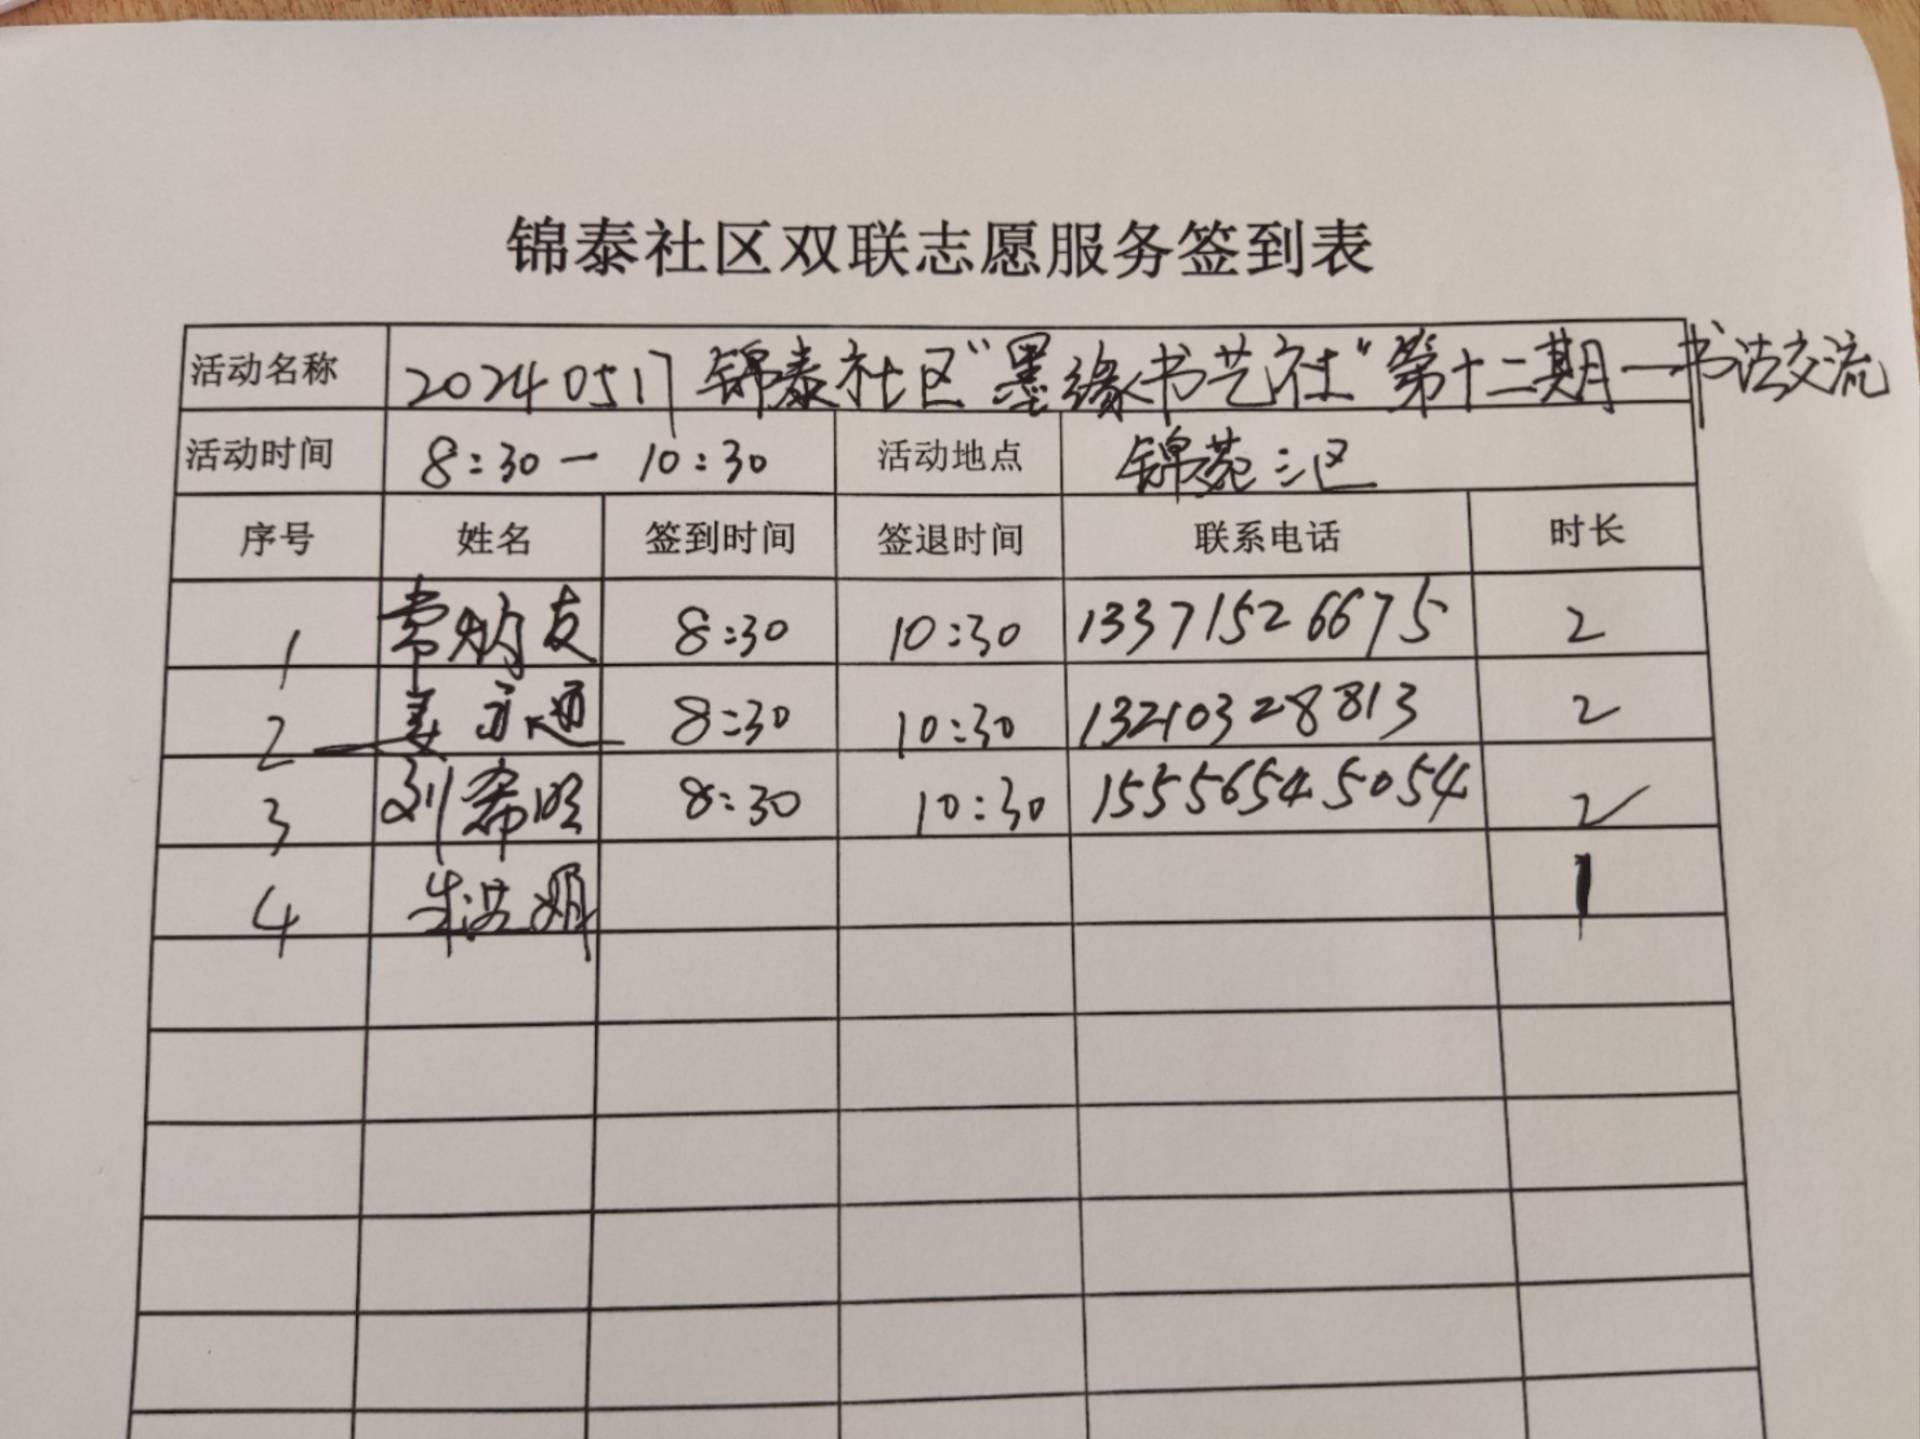 锦泰社区双联志愿服务签到表
活动名称 20240517 锦泰社区"墨缘书艺社"第十二期—书法交流
活动时间 8:30 — 10:30 活动地点 锦苑三区
序号 姓名 签到时间 签退时间 联系电话 时长
1 常炳友 8:30 10:30 13371526675 2
2 姜永通 8:30 10:30 13210328813 2
3 刘希明 8:30 10:30 15556545054 2
4 1